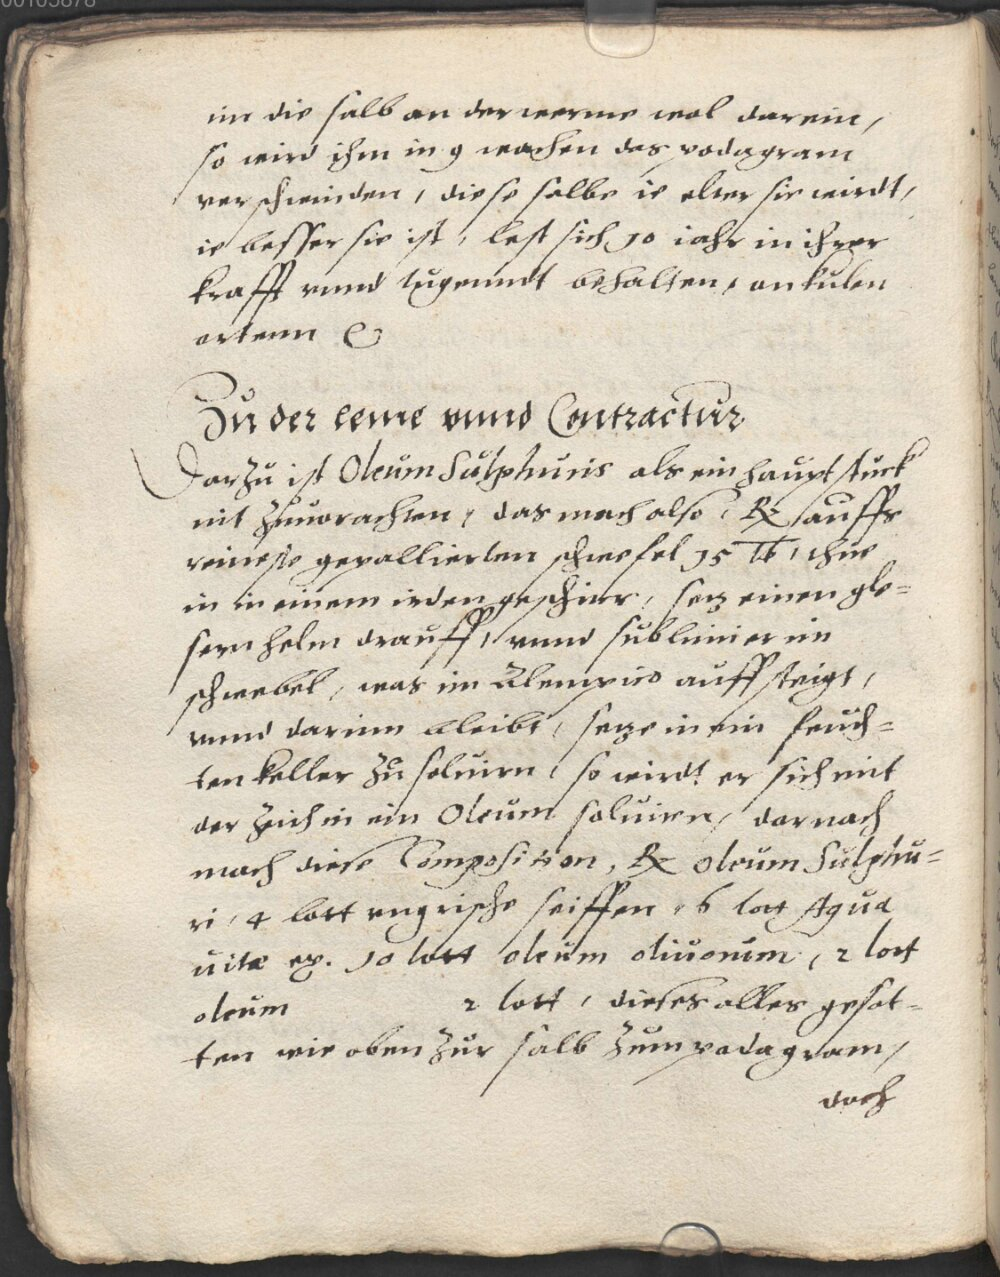 00105878
im die salb an der werme wol darein,
so wird ihm in 9 wochen das podagram
verschwinden, diese salbe ie elter sie wirdt,
ie besser sie ist, lest sich 10 iahr in ihrer
krafft vnnd tugenndt behalten, an kulen
ortenn
Zu der leme vnnd Contractur
Darzu ist Oleum Sulphuris als ein hauptstuck
nit zuuorachten, das mach also, ℞ auffs
reineste gepallierten schwefel 15 ℔, thue
in in einem irden geschirr, setz einen gle=
sern helm drauff, vnnd sublimier im
schwebel, was im Alempico auffsteigt,
vnnd darinn bleibt, setze in ein feuch=
ten keller zu soluirn, so wirdt er sich mit
der Zeich in ein Oleum soluiren, darnach
mach diese Composition, ℞ oleum Sulphu=
ri, 4 lott vngrische seiffen, 6 lott Aqua
uitæ ep. 10 lott oleum oliuorum, 2 lott
oleum 2 lott, dieses alles gesot=
ten wie oben zur salb zum podagram,
doch